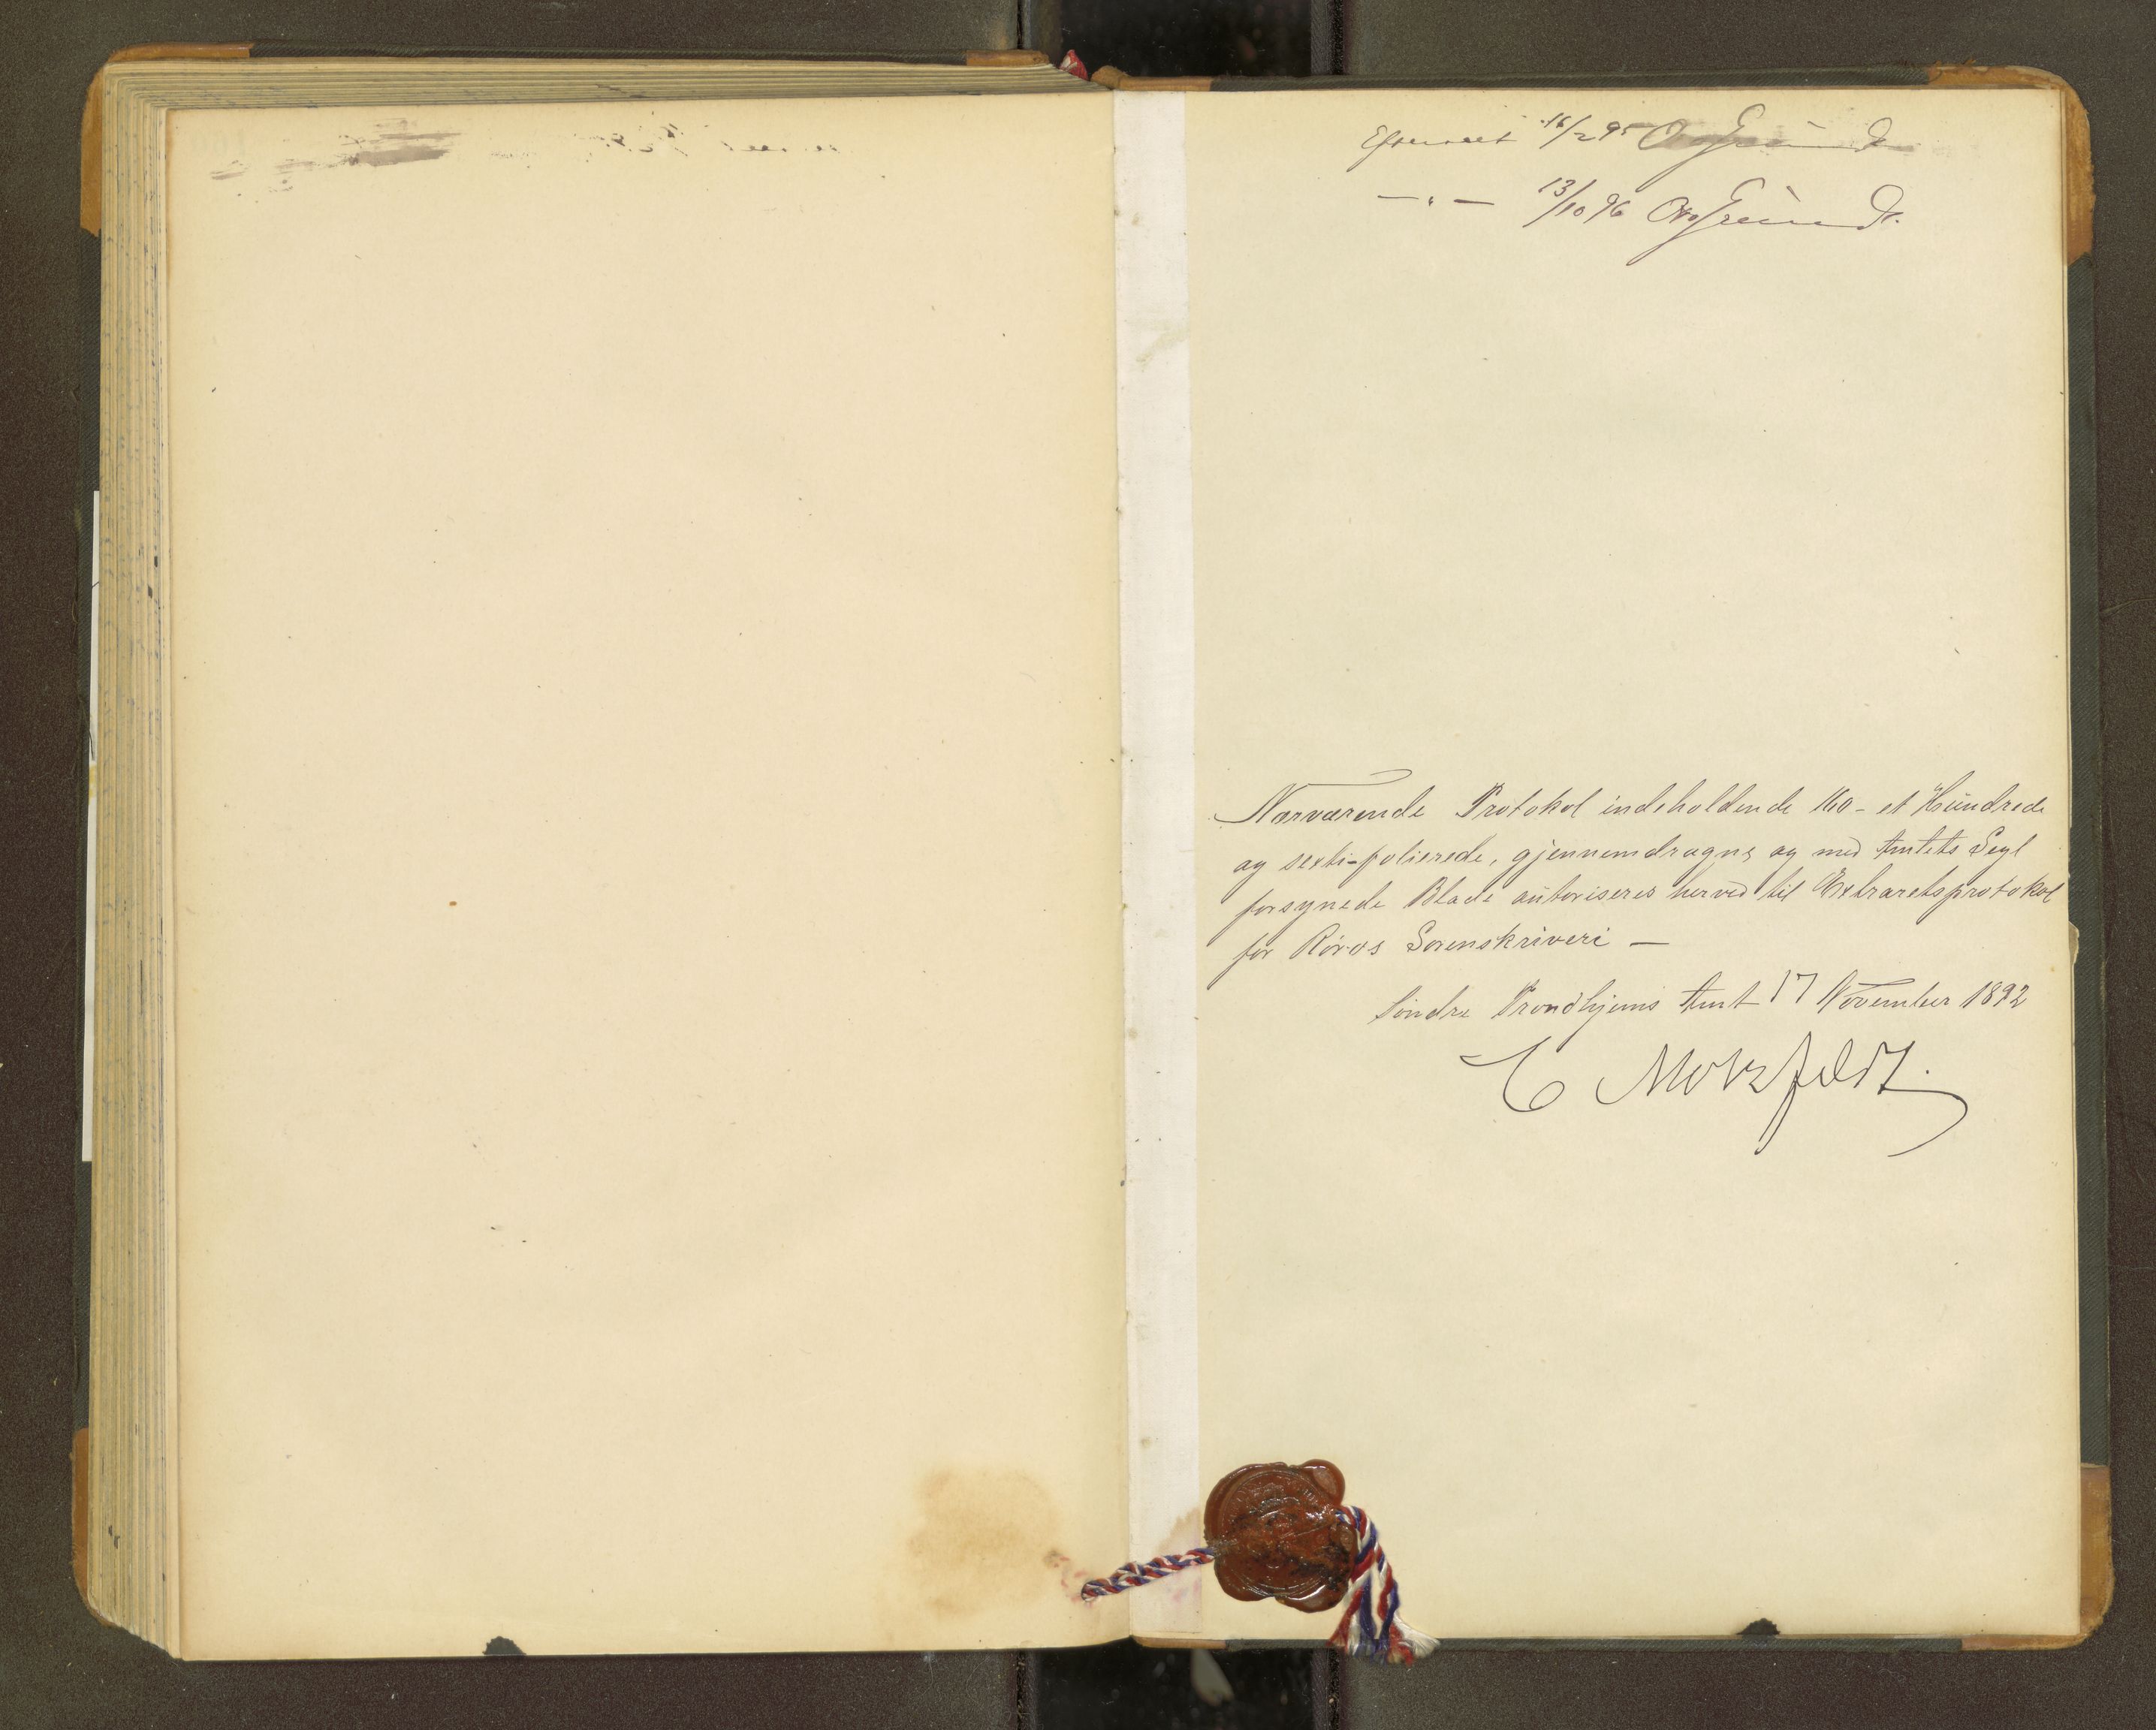 Efterseet 16/2 95 OvGrundt
— " — 13/10 96 OvGrundt.
Nærværende Protokol indeholdende 160 - et Hundrede
og sexti - folierede, gjennemdragne og med Amtets Segl
forsynede Blade autoriseres herved til Extraretsprotokol
for Røros Sorenskriveri —
Søndre Trondhjems Amt 17 November 1892
C Motzfeldt.